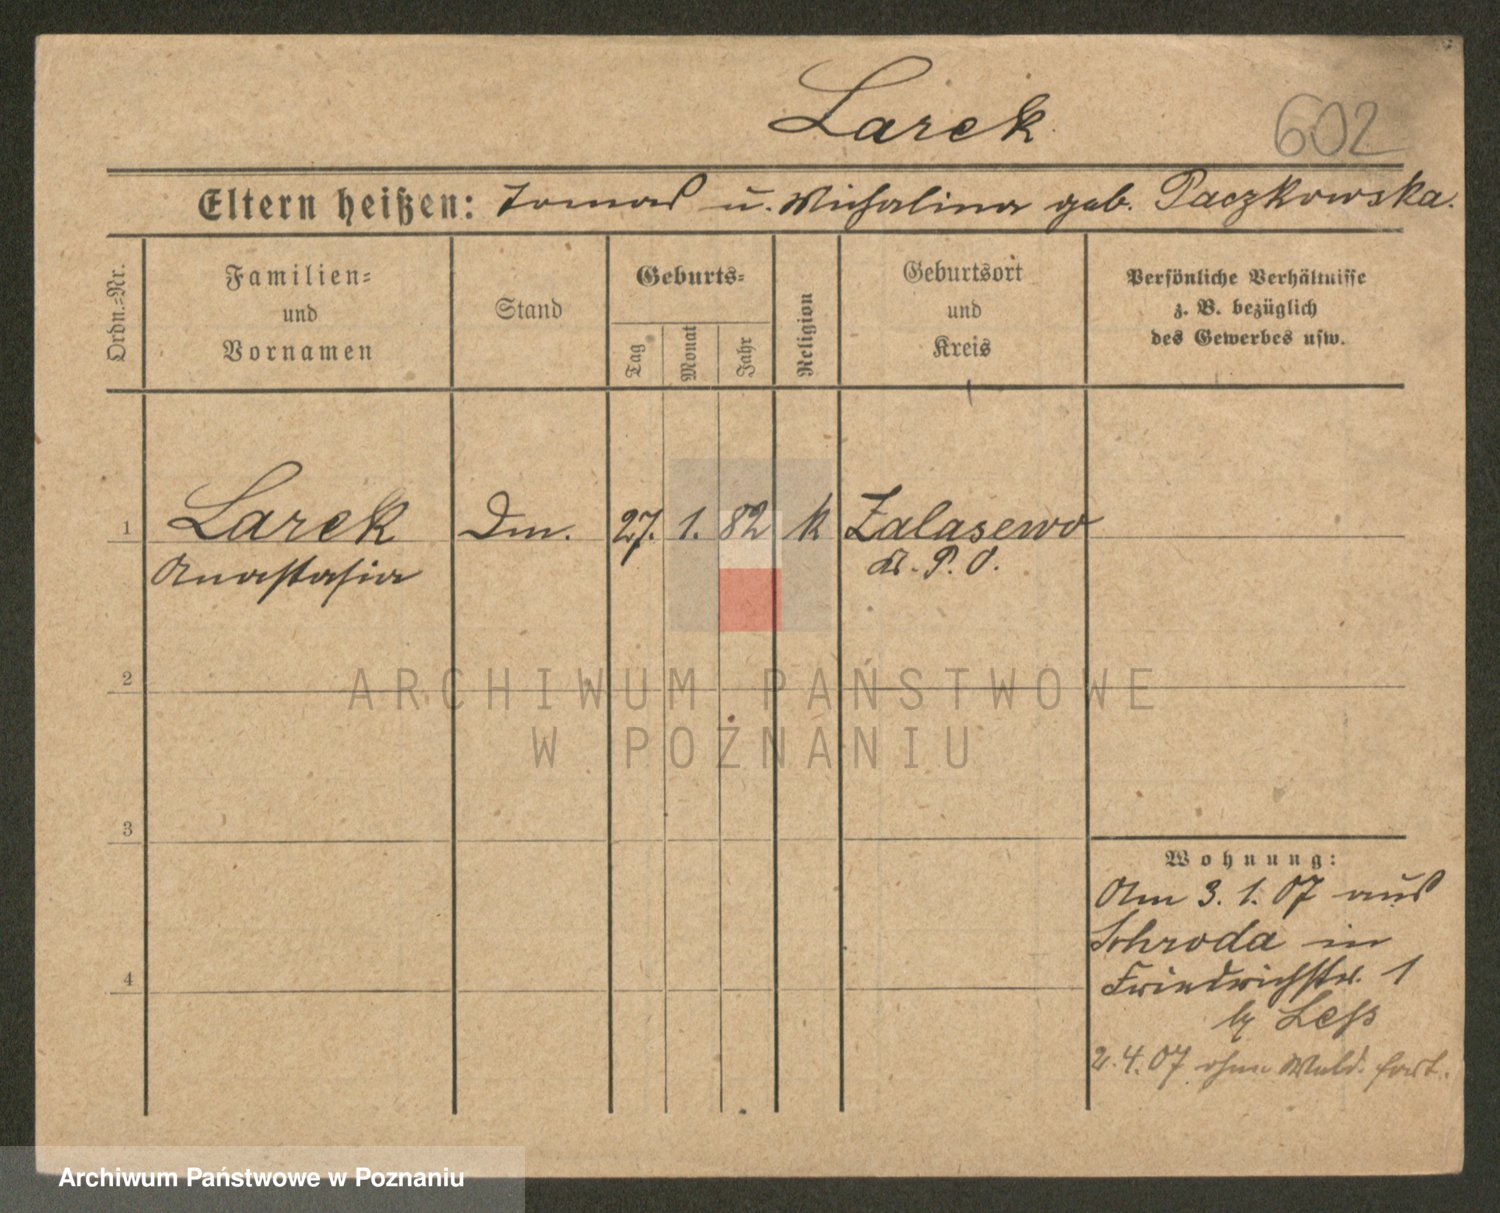 Larek
602
Eltern heißen: Tomas u. Michalina geb. Paczkowska.
Ordn.=Nr.
Familien=
und
Vornamen
Stand
Geburts=
Tag
Monat
Jahr
Religion
Geburtsort
und
Kreis
Persönliche Verhältnisse
z. B. bezüglich
des Gewerbes usw.
1 Larek Dm. 27. 1. 82 k Zalasewo
Anastasia Kr. P. O.
2
ARCHIWUM PAŃSTWOWE
W POZNANIU
3
Wohnung:
Am 3. 1. 07 aus
Schroda in
4 Friedrichstr. 1
b/ Leß
2. 4. 07 ohne Meld. fort.
Archiwum Państwowe w Poznaniu